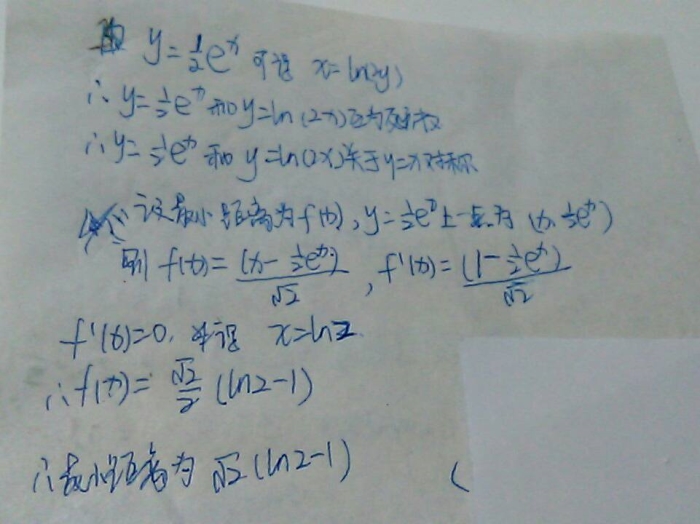 由 y=½eˣ 可得 x=ln(2y)
∴y=½eˣ和y=ln(2x)互为反函数
∴y=½eˣ和y=ln(2x)关于y=x对称
设最小距离为f(x),y=½eˣ上一点为(x,½eˣ)
则 f(x)=(x-½eˣ)/√2,f'(x)=(1-½eˣ)/√2
f'(x)=0,解得 x=ln2
∴f(x)=√2/2(ln2-1)
∴最小距离为√2(ln2-1)
(